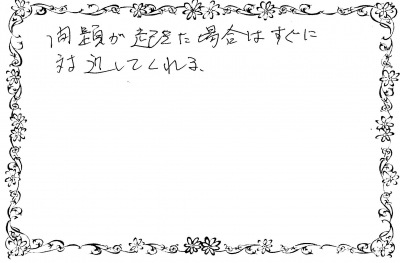 問題が起きた場合はすぐに
対処してくれる。